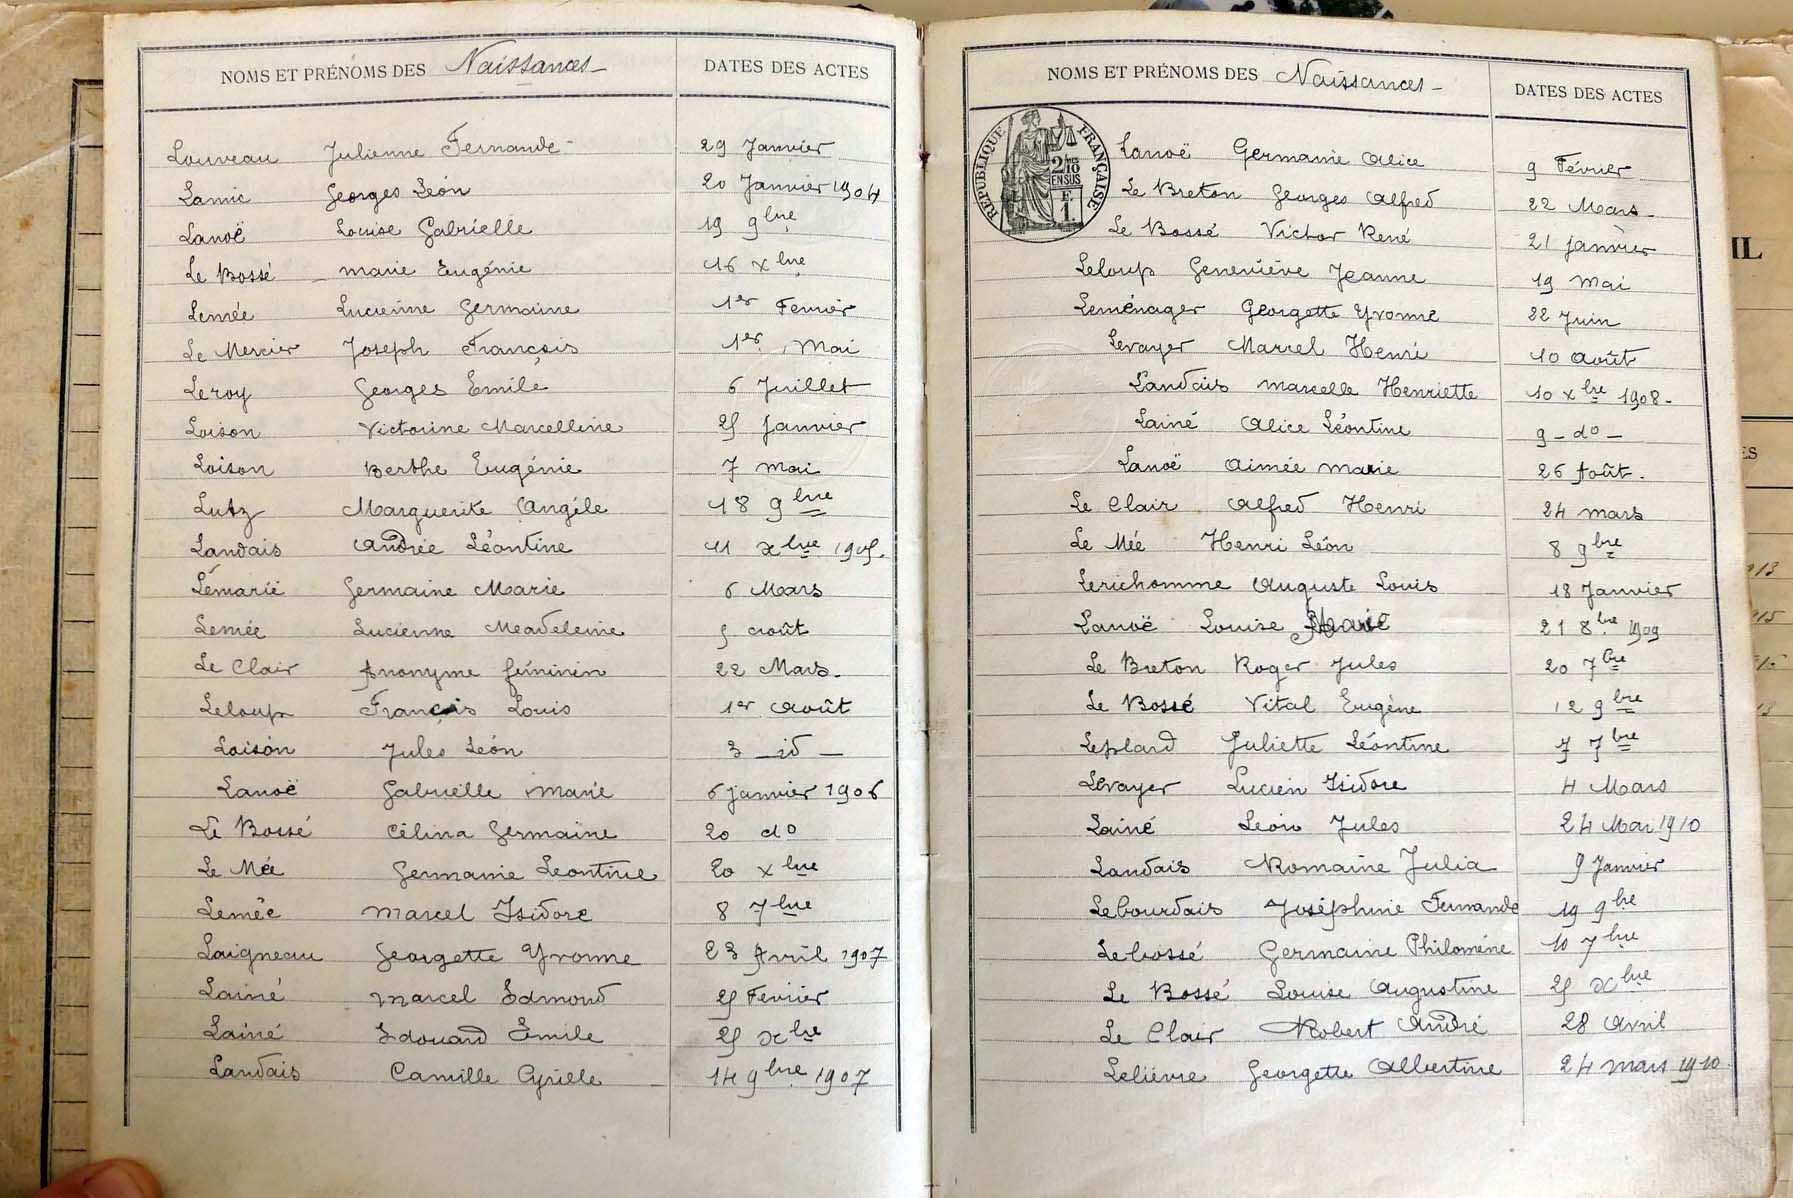 NOMS ET PRÉNOMS DES Naissances - DATES DES ACTES
Louveau Julienne Fernande - 29 Janvier
Lamic Georges Léon 20 Janvier 1904
Lanoë Louise Gabrielle 19 9bre
Le Bossé - Marie Eugénie 16 xbre
Lemée Lucienne Germaine 1er Fevrier
Le Mercier Joseph François 1er Mai
Leroy Georges Emile 6 Juillet
Loison Victorine Marcelline 25 Janvier
Loison Berthe Eugénie 7 mai
Lutz Marguerite Angéle 18 9bre
Landais Andrée Léontine 11 xbre 1905.
Lémarié Germaine Marie 6 Mars
Lemée Lucienne Madeleine 5 août
Le Clair Anonyme féminin 22 Mars -
Leloup François Louis 1er Août
Loison Jules Léon 3 - id -
Lanoë Gabrielle Marie 6 janvier 1906
Le Bossé Célina Germaine 20 do
Le Mée Germaine Leontine 20 xbre
Lemée Marcel Isidore 8 7bre
Laigneau Georgette Yvonne 23 Avril 1907
Lainé Marcel Edmond 25 Fevrier
Lainé Edouard Emile 25 xbre
Landais Camille Cyrille 14 9bre 1907
NOMS ET PRÉNOMS DES Naissances - DATES DES ACTES
RÉPUBLIQUE FRANÇAISE
2/10
EN SUS
F
1
Lanoë Germaine Alice 9 Février
Le Breton Georges Alfred 22 Mars -
Le Bossé Victor René 21 janvier
Leloup Geneviève Jeanne 19 mai
Leménager Georgette Yvonne 22 Juin
Levayer Marcel Henri 10 août
Landais Marcelle Henriette 10 xbre 1908 -
Lainé Alice Léontine 9 - do -
Lanoë Aimée Marie 26 Août .
Le Clair Alfred Henri 24 mars
Le Mée Henri Léon 8 9bre
Lerichomme Auguste Louis 18 Janvier
Lanoë Louise Marie 21 8bre 1909
Le Breton Roger Jules 20 7bre
Le Bossé Vital Eugène 12 9bre
Leplard Juliette Léontine 7 7bre
Levayer Lucien Isidore 4 Mars
Lainé Léon Jules 24 Mai 1910
Landais Romaine Julia 9 Janvier
Lebourdais Joséphine Fernande 19 9bre
Lebossé Germaine Philoméne 10 7bre
Le Bossé Louise Augustine 25 xbre
Le Clair Robert André 28 Avril
Lelièvre Georgette Albertine 24 mars 1910